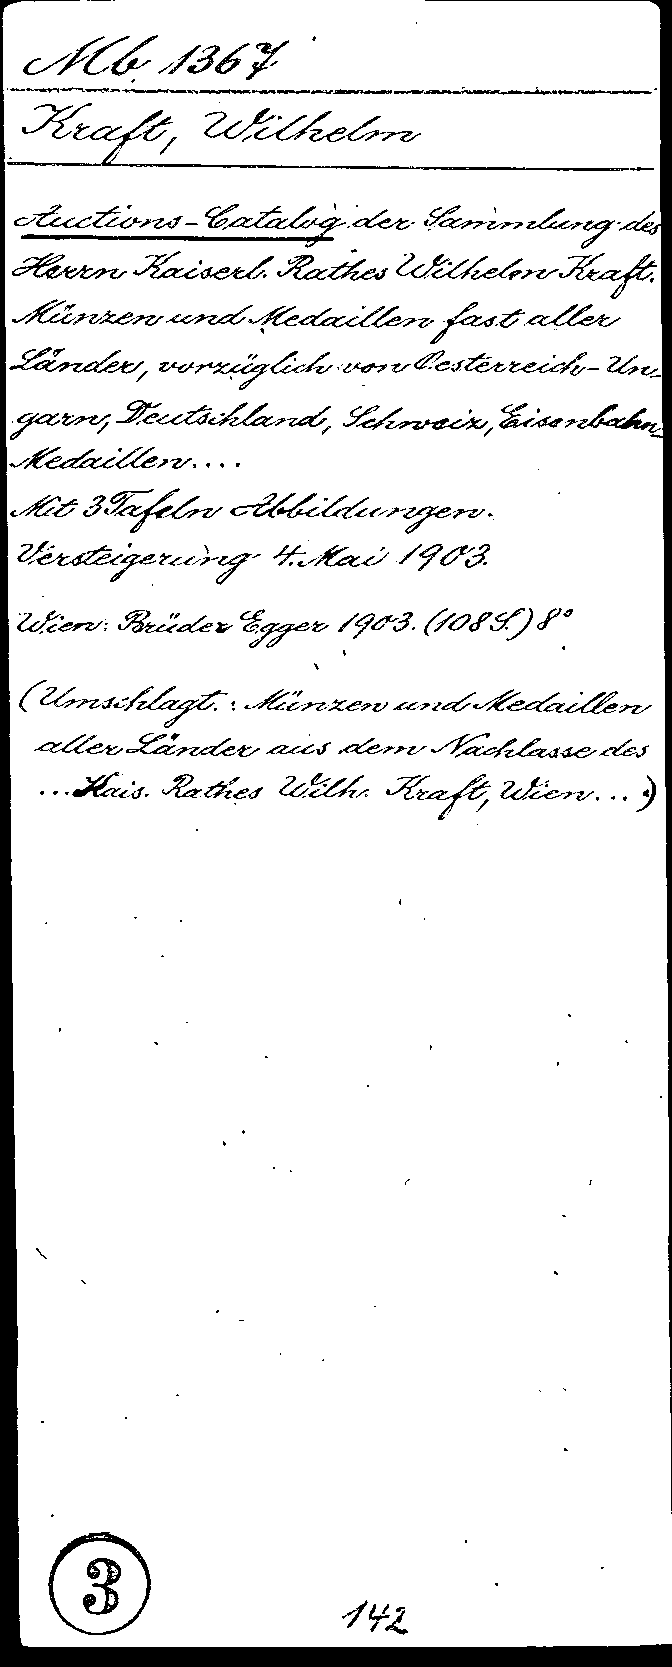 Mb 1367
Kraft, Wilhelm
Auctions-Catalog der Sammlung des
Herrn Kaiserl. Rathes Wilhelm Kraft.
Münzen und Medaillen fast aller
Länder, vorzüglich von Oesterreich-Un-
garn, Deutschland, Schweiz, Eisenbahn-
Medaillen....
Mit 3 Tafeln Abbildungen.
Versteigerung 4. Mai 1903.
Wien: Brüder Egger 1903. (108 S.) 8°
(Umschlagt.: Münzen und Medaillen
aller Länder aus dem Nachlasse des
...Kais. Rathes Wilh. Kraft, Wien...)
3
142